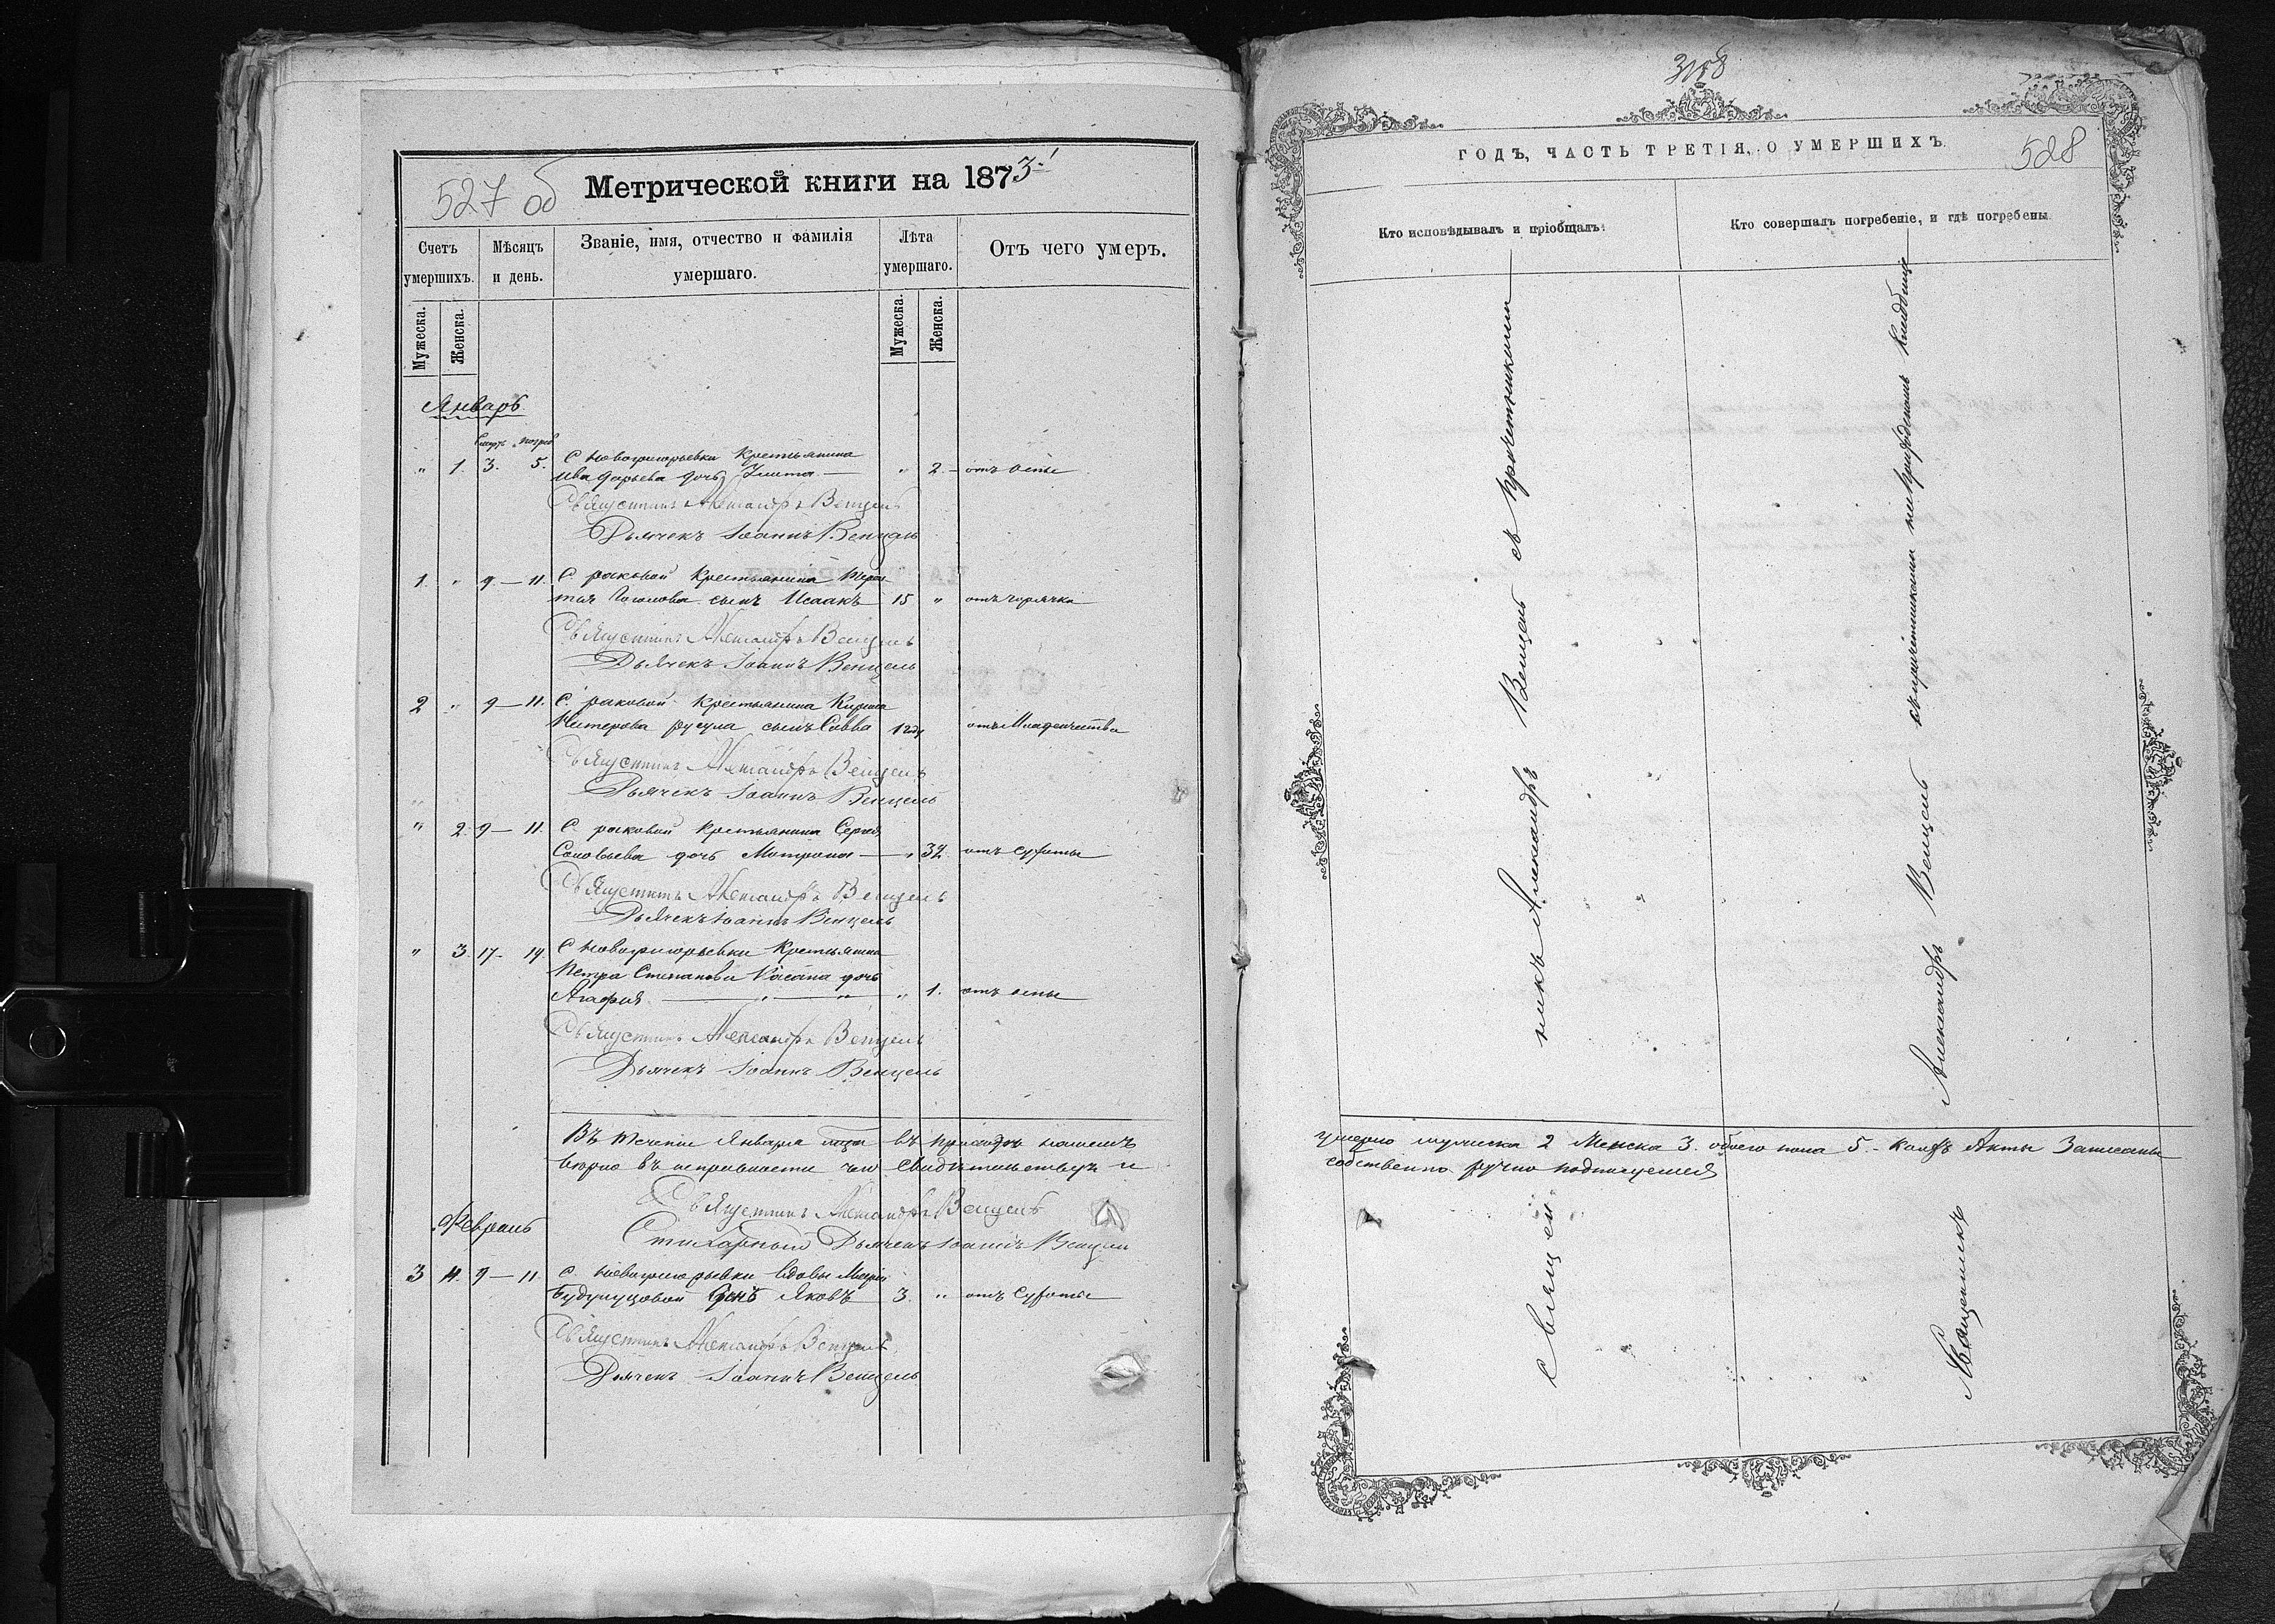 527 об
Метрической книги на 1873
Счетъ умершихъ.
Мужеска.
Женска.
Мѣсяцъ и день.
Званіе, имя, отчество и фамилія умершаго.
Лѣта умершаго.
Мужеска.
Женска.
Отъ чего умеръ.
Январь
" 1. 3. 5. С Новогригорьевки Крестьянина
дочь " 2. отъ оспы
Священникъ Александръ Венцель
Дьячекъ Іоаннъ Венцель
1. " 9 — 11. С. раковой Крестьянина
сынъ Исаакъ 15 " отъ горячки
Священникъ Александръ Венцель
Дьячекъ Іоаннъ Венцель
2 " 9 — 11. С. раковой Крестьянина
Нестерова сынъ Савва отъ Младенчества
Священникъ Александръ Венцель
Дьячекъ Іоаннъ Венцель
" 2. 9 — 11. С. раковой Крестьянина Сергея
Соловьева дочь Матрона — " 32. отъ сухоты
Священникъ Александръ Венцель
Дьячекъ Іоаннъ Венцель
" 3. 17 - 19. С Новогригорьевки Крестьянина
Петра Степанова дочь
Агафия — " — " " 1. отъ оспы
Священникъ Александръ Венцель
Дьячекъ Іоаннъ Венцель
Въ течении Января въ приходе нашемъ
верно въ исправности чего свидетельствуемъ и
Священникъ Александръ Венцель
Стихарный Дьячекъ Іоаннъ Венцель
Февраль
3 9 — 11 С. Новогригорьевки вдовы Марии
сынъ Яковъ 3. " отъ сухоты
Священникъ Александръ Венцель
Дьячекъ Іоаннъ Венцель
ГОДЪ, ЧАСТЬ ТРЕТІЯ, О УМЕРШИХЪ.
528
Кто исповѣдывалъ и пріобщалъ.
Кто совершалъ погребеніе, и гдѣ погребены.
Священникъ Александръ Венцель съ причетниками
Священникъ Александръ Венцель съ причетниками на приходскомъ кладбище
умерло мужеска 2 Женска 3. обоего пола 5. - Акты Записаны
собственно ручно подписуемся